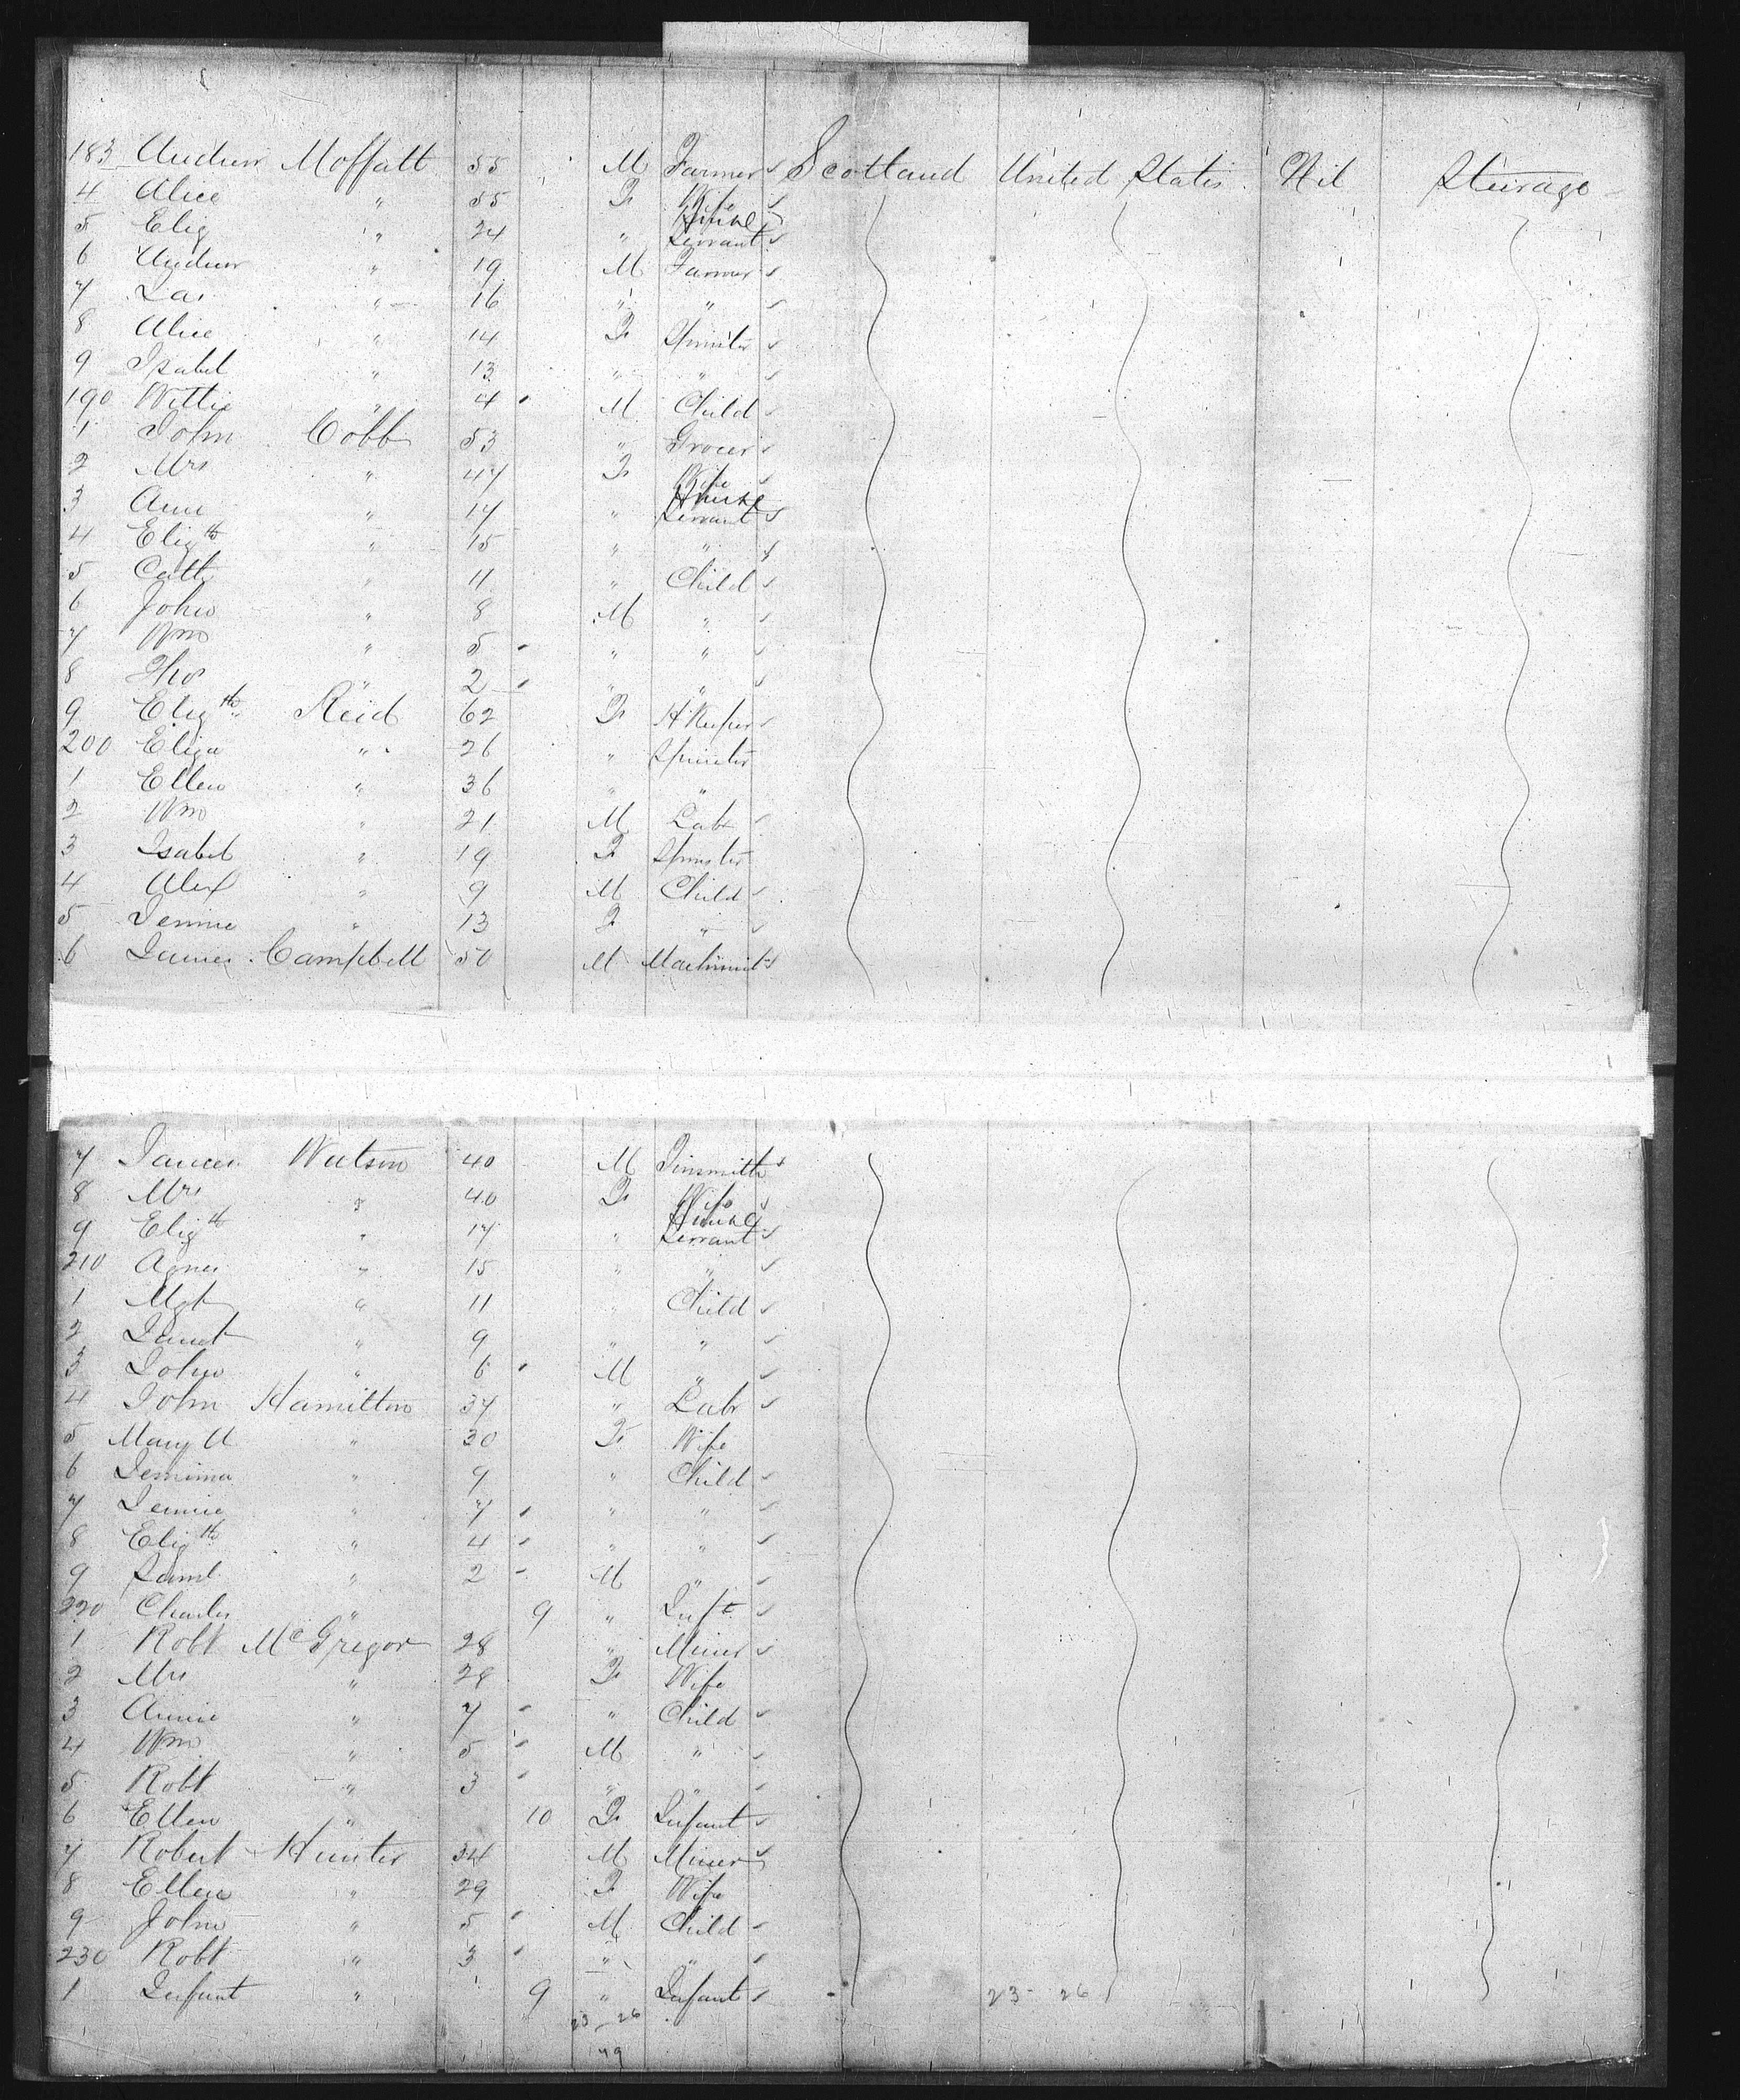 183 Andrew Moffatt 55 M Farmer Scotland United States Nil Steerage
4 Alice " 55 F Wife
5 Eliz " 24 " House Servant
6 Andrew " 19 M Farmer
7 Jas " 16 " "
8 Alice " 14 F Spinster
9 Isabel " 13 " "
190 Willie " 4 M Child
1 John Cobb 53 " Grocer
2 Mrs " 47 F Wife
3 Ann " 17 " House Servant
4 Elizth " 15 " "
5 Cath " 11 " Child
6 John " 8 M "
7 Wm " 5 " "
8 Thos " 2 " "
9 Elizth Reid 62 F H Keeper
200 Eliza " 26 " Spinster
1 Ellen " 36 " "
2 Wm " 21 M Labr
3 Isabel " 19 F Spinster
4 Alex " 9 M Child
5 Jennie " 13 F "
6 James Campbell 50 M Machinist
7 James Watson 40 M Tinsmith
8 Mrs " 40 F Wife
9 Elizth " 17 " House Servant
210 Agnes " 15 " "
1 Mgt " 11 " Child
2 Janet " 9 " "
3 John " 6 M "
4 John Hamilton 37 " Labr
5 Mary A " 30 F Wife
6 Jemima " 9 " Child
7 Jennie " 7 " "
8 Elizth " 4 " "
9 Saml " 2 M "
220 Charles " 9 " Inft
1 Robt McGregor 28 " Miner
2 Mrs " 28 F Wife
3 Annie " 7 " Child
4 Wm " 5 M "
5 Robt " 3 " "
6 Ellen " 10 F Infant
7 Robert Hunter 34 M Miner
8 Ellen " 29 F Wife
9 John " 5 M Child
230 Robt " 3 " "
1 Infant " 9 " Infant 23-26
23-26
49